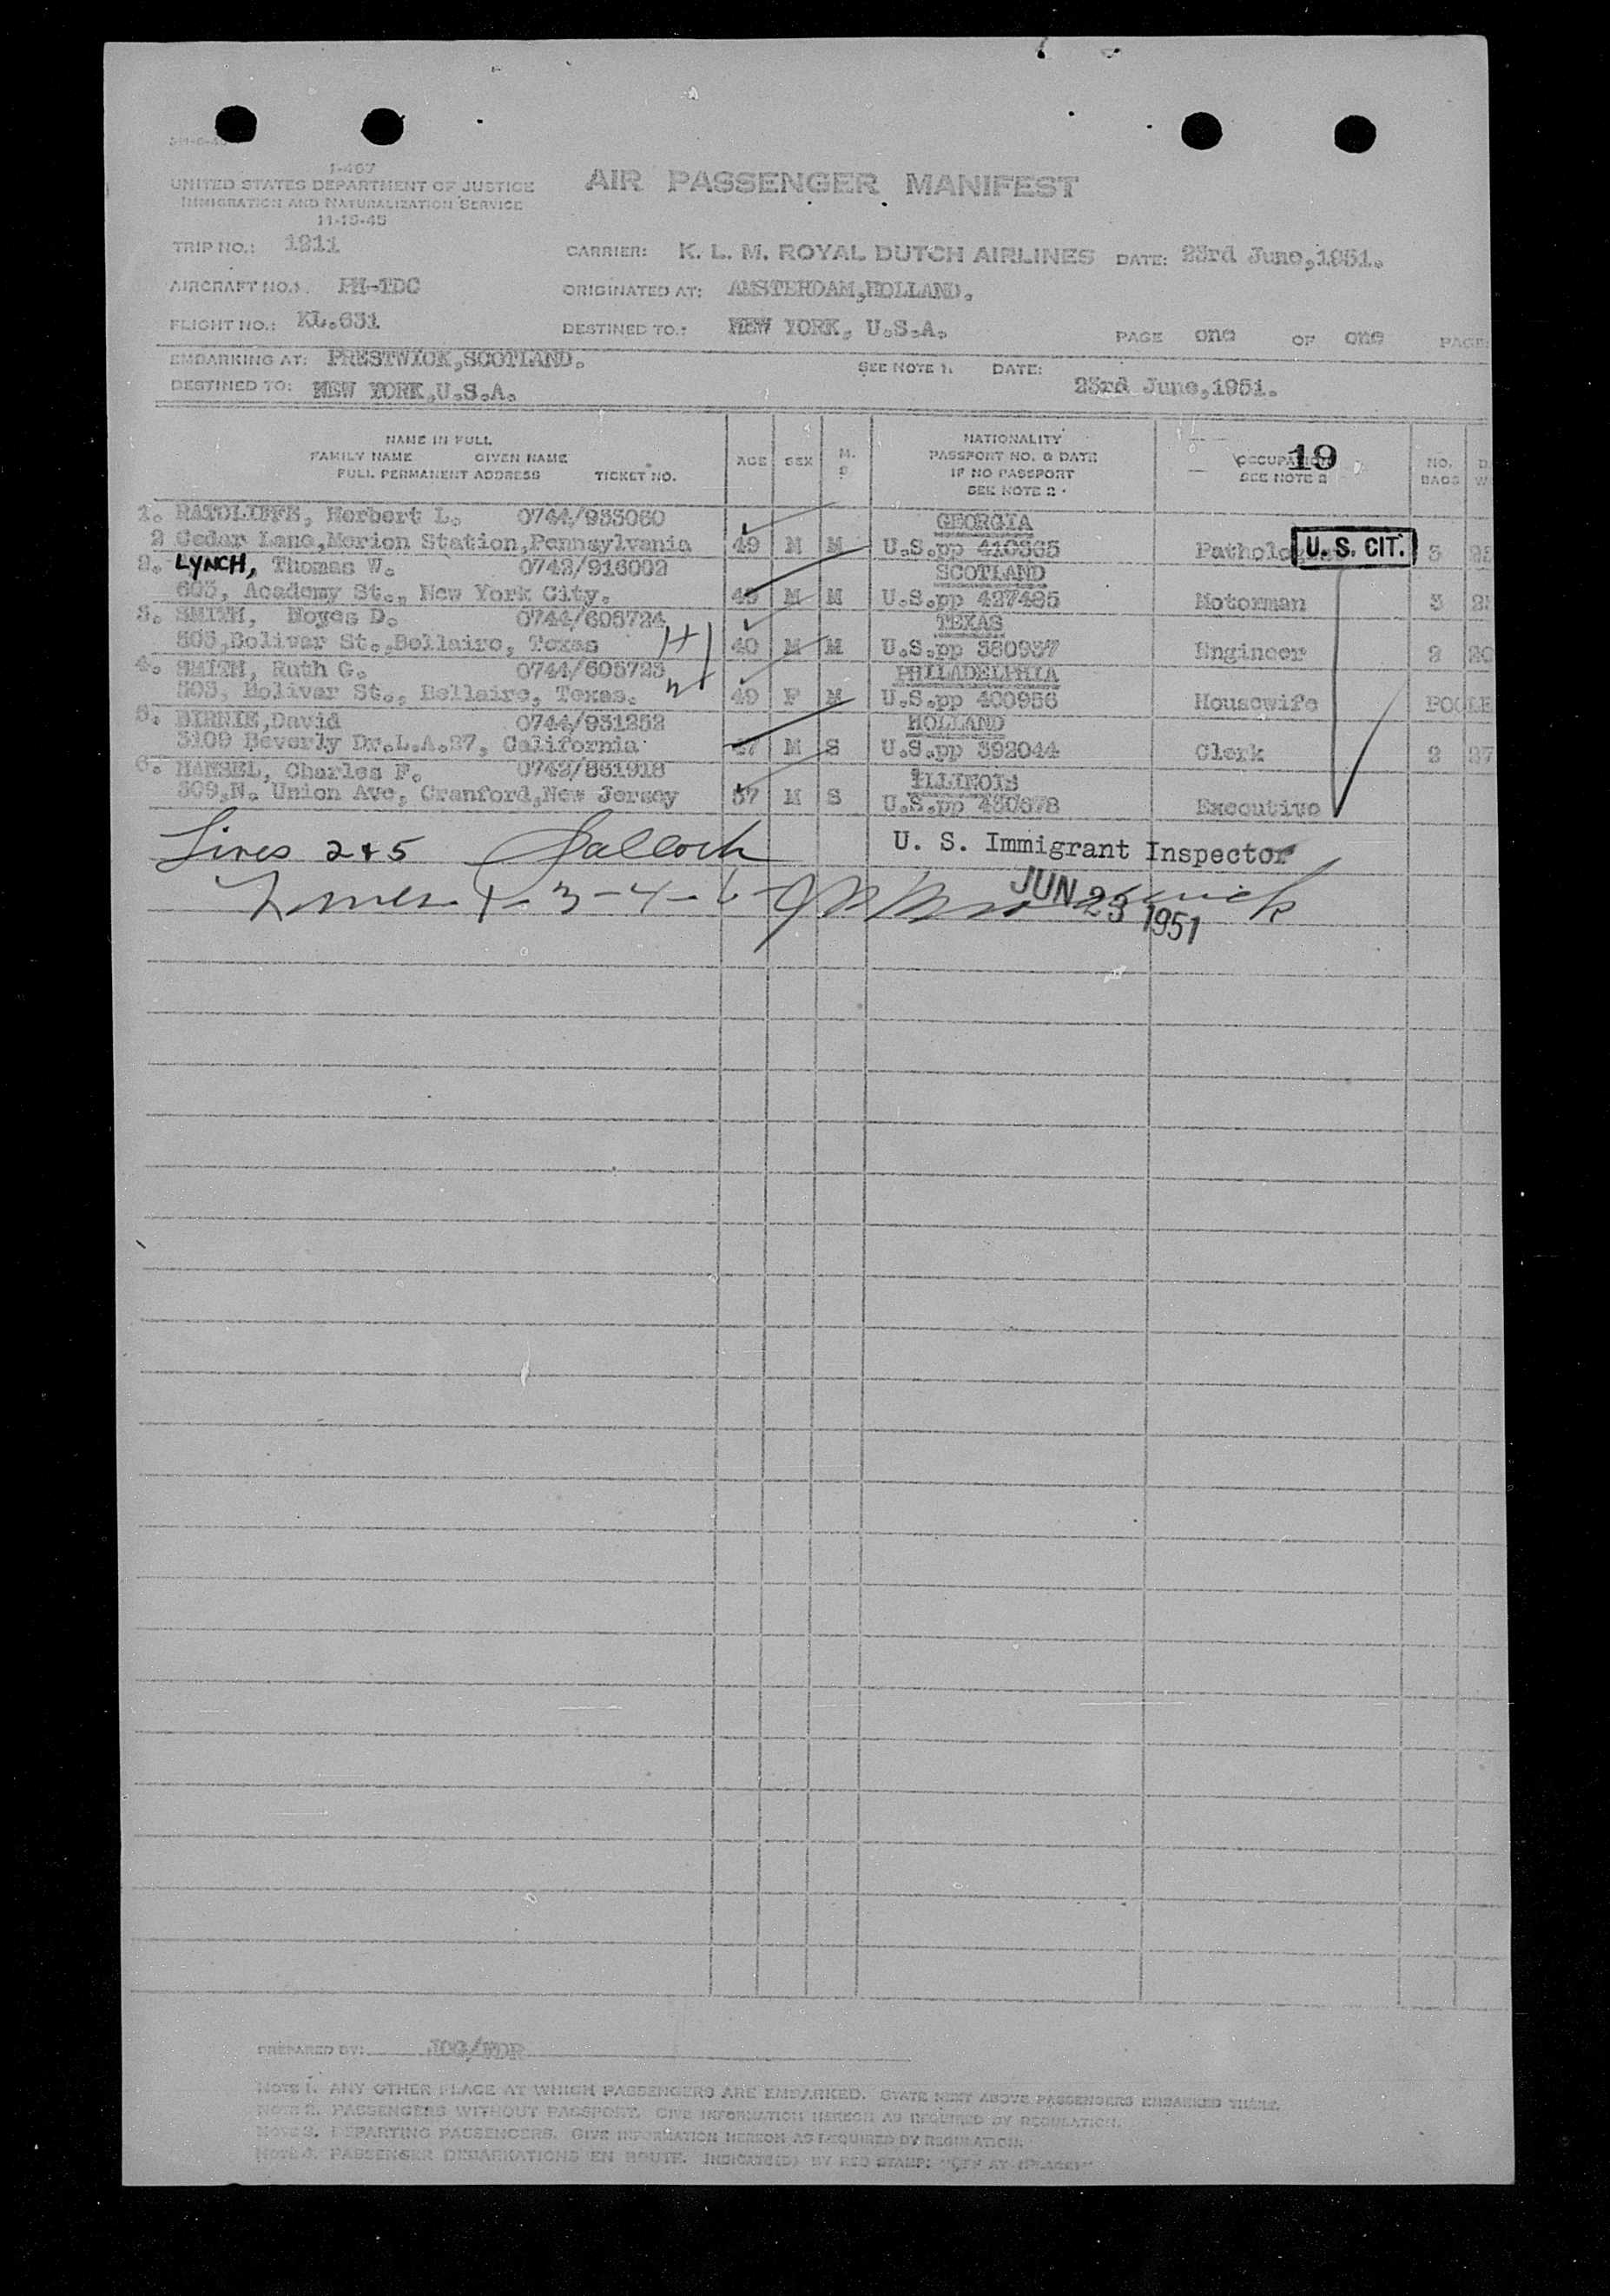 I-467
UNITED STATES DEPARTMENT OF JUSTICE
IMMIGRATION AND NATURALIZATION SERVICE
11-15-45
AIR PASSENGER MANIFEST
TRIP NO.: 1911
CARRIER: K. L. M. ROYAL DUTCH AIRLINES DATE: 23rd June,1951.
AIRCRAFT NO.: PH-TDC
ORIGINATED AT: AMSTERDAM,HOLLAND.
FLIGHT NO.: KL.631
DESTINED TO.: NEW YORK, U.S.A.
PAGE one OF one PAGE
EMBARKING AT: PRESTWICK,SCOTLAND.
SEE NOTE 1. DATE:
DESTINED TO: NEW YORK,U.S.A. 23rd June,1951.
NAME IN FULL
FAMILY NAME GIVEN NAME
FULL PERMANENT ADDRESS TICKET NO.
AGE SEX M. S
NATIONALITY
PASSPORT NO. & DATE
IF NO PASSPORT
SEE NOTE 2
19
OCCUPATION
SEE NOTE 2
NO.
BAGS
1. RATCLIFFE, Herbert L. 0744/933060 GEORGIA
2 Cedar Lane,Merion Station,Pennsylvania 49 M M U.S.pp 410365 U. S. CIT. 3
2. LYNCH, Thomas W. 0742/916002 SCOTLAND
603, Academy St., New York City. M M U.S.pp 427485 Motorman 3
3. SMITH, Noyes D. 0744/605724 TEXAS
803,Bolivar St.,Bellaire, Texas 40 M M U.S.pp Engineer 2
4. SMITH, Ruth G. 0744/605723 PHILADELPHIA
803, Bolivar St., Bellaire, Texas. F M U.S.pp 400956 Housewife
5. BIRNIE,David 0744/931252 HOLLAND
3109 Beverly Dr.L.A.27, California M S U.S.pp 392044 Clerk 2 27
6. HANSEL, Charles F. 0742/851918 ILLINOIS
309,N. Union Ave, Cranford,New Jersey 37 M S U.S.pp 450678 Executive
Lines 2 & 5
U. S. Immigrant Inspector
Lines 1-3-4-6
JUN 23 1951
PREPARED BY:
NOTE 1. ANY OTHER PLACE AT WHICH PASSENGERS ARE EMBARKED. STATE NEXT ABOVE PASSENGERS EMBARKED THERE.
NOTE 2. PASSENGERS WITHOUT PASSPORT. GIVE INFORMATION HEREON AS REQUIRED BY REGULATION.
NOTE 3. DEPARTING PASSENGERS. GIVE INFORMATION HEREON AS REQUIRED BY REGULATION.
NOTE 4. PASSENGER DEBARKATIONS EN ROUTE. INDICATE(D) BY RED STAMP: "OFF AT (PLACE)"